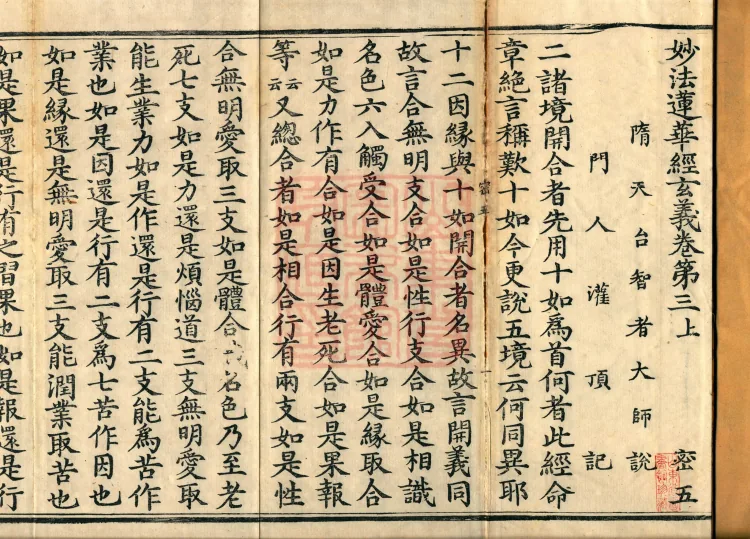 妙法蓮華經玄義卷第三上 密五
隋天台智者大師說
門人灌頂記
二諸境開合者先用十如爲首何者此經命
章絕言稱歎十如今更說五境云何同異耶
密五 一
十二因緣與十如開合者名異故言開義同
故言合無明支合如是性行支合如是相識
名色六入觸受合如是體愛合如是緣取合
如是力作有合如是因生老死合如是果報
等云云又總合者如是相合行有兩支如是性
合無明愛取三支如是體合識名色乃至老
死七支如是力還是煩惱道三支無明愛取
能生業力如是作還是行有二支能爲苦作
業也如是因還是行有二支爲七苦作因也
如是緣還是無明愛取三支能潤業取苦也
如是果還是行有之習果也如是報還是行